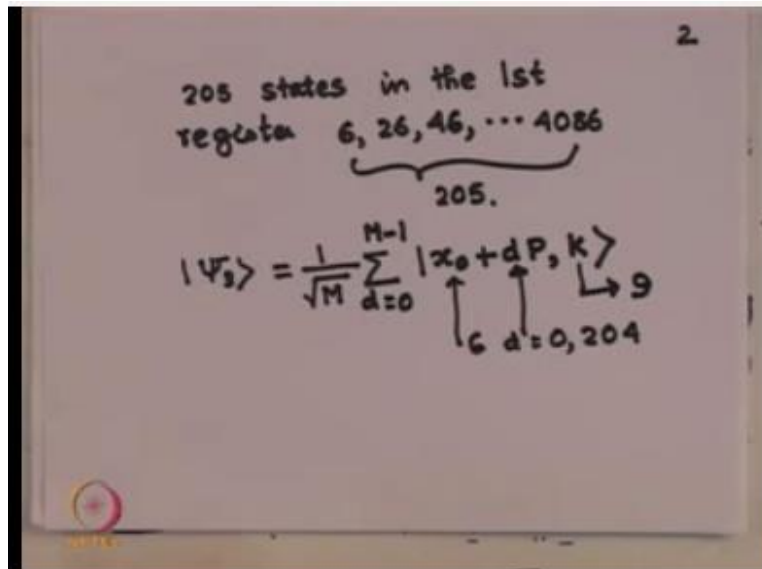 2
205 states in the 1st
register 6, 26, 46, ... 4086
205.
|Ψ₃⟩ = 1/√M ∑_{d=0}^{M-1} |x₀ + dP, k⟩
→ 9
6 d = 0, 204